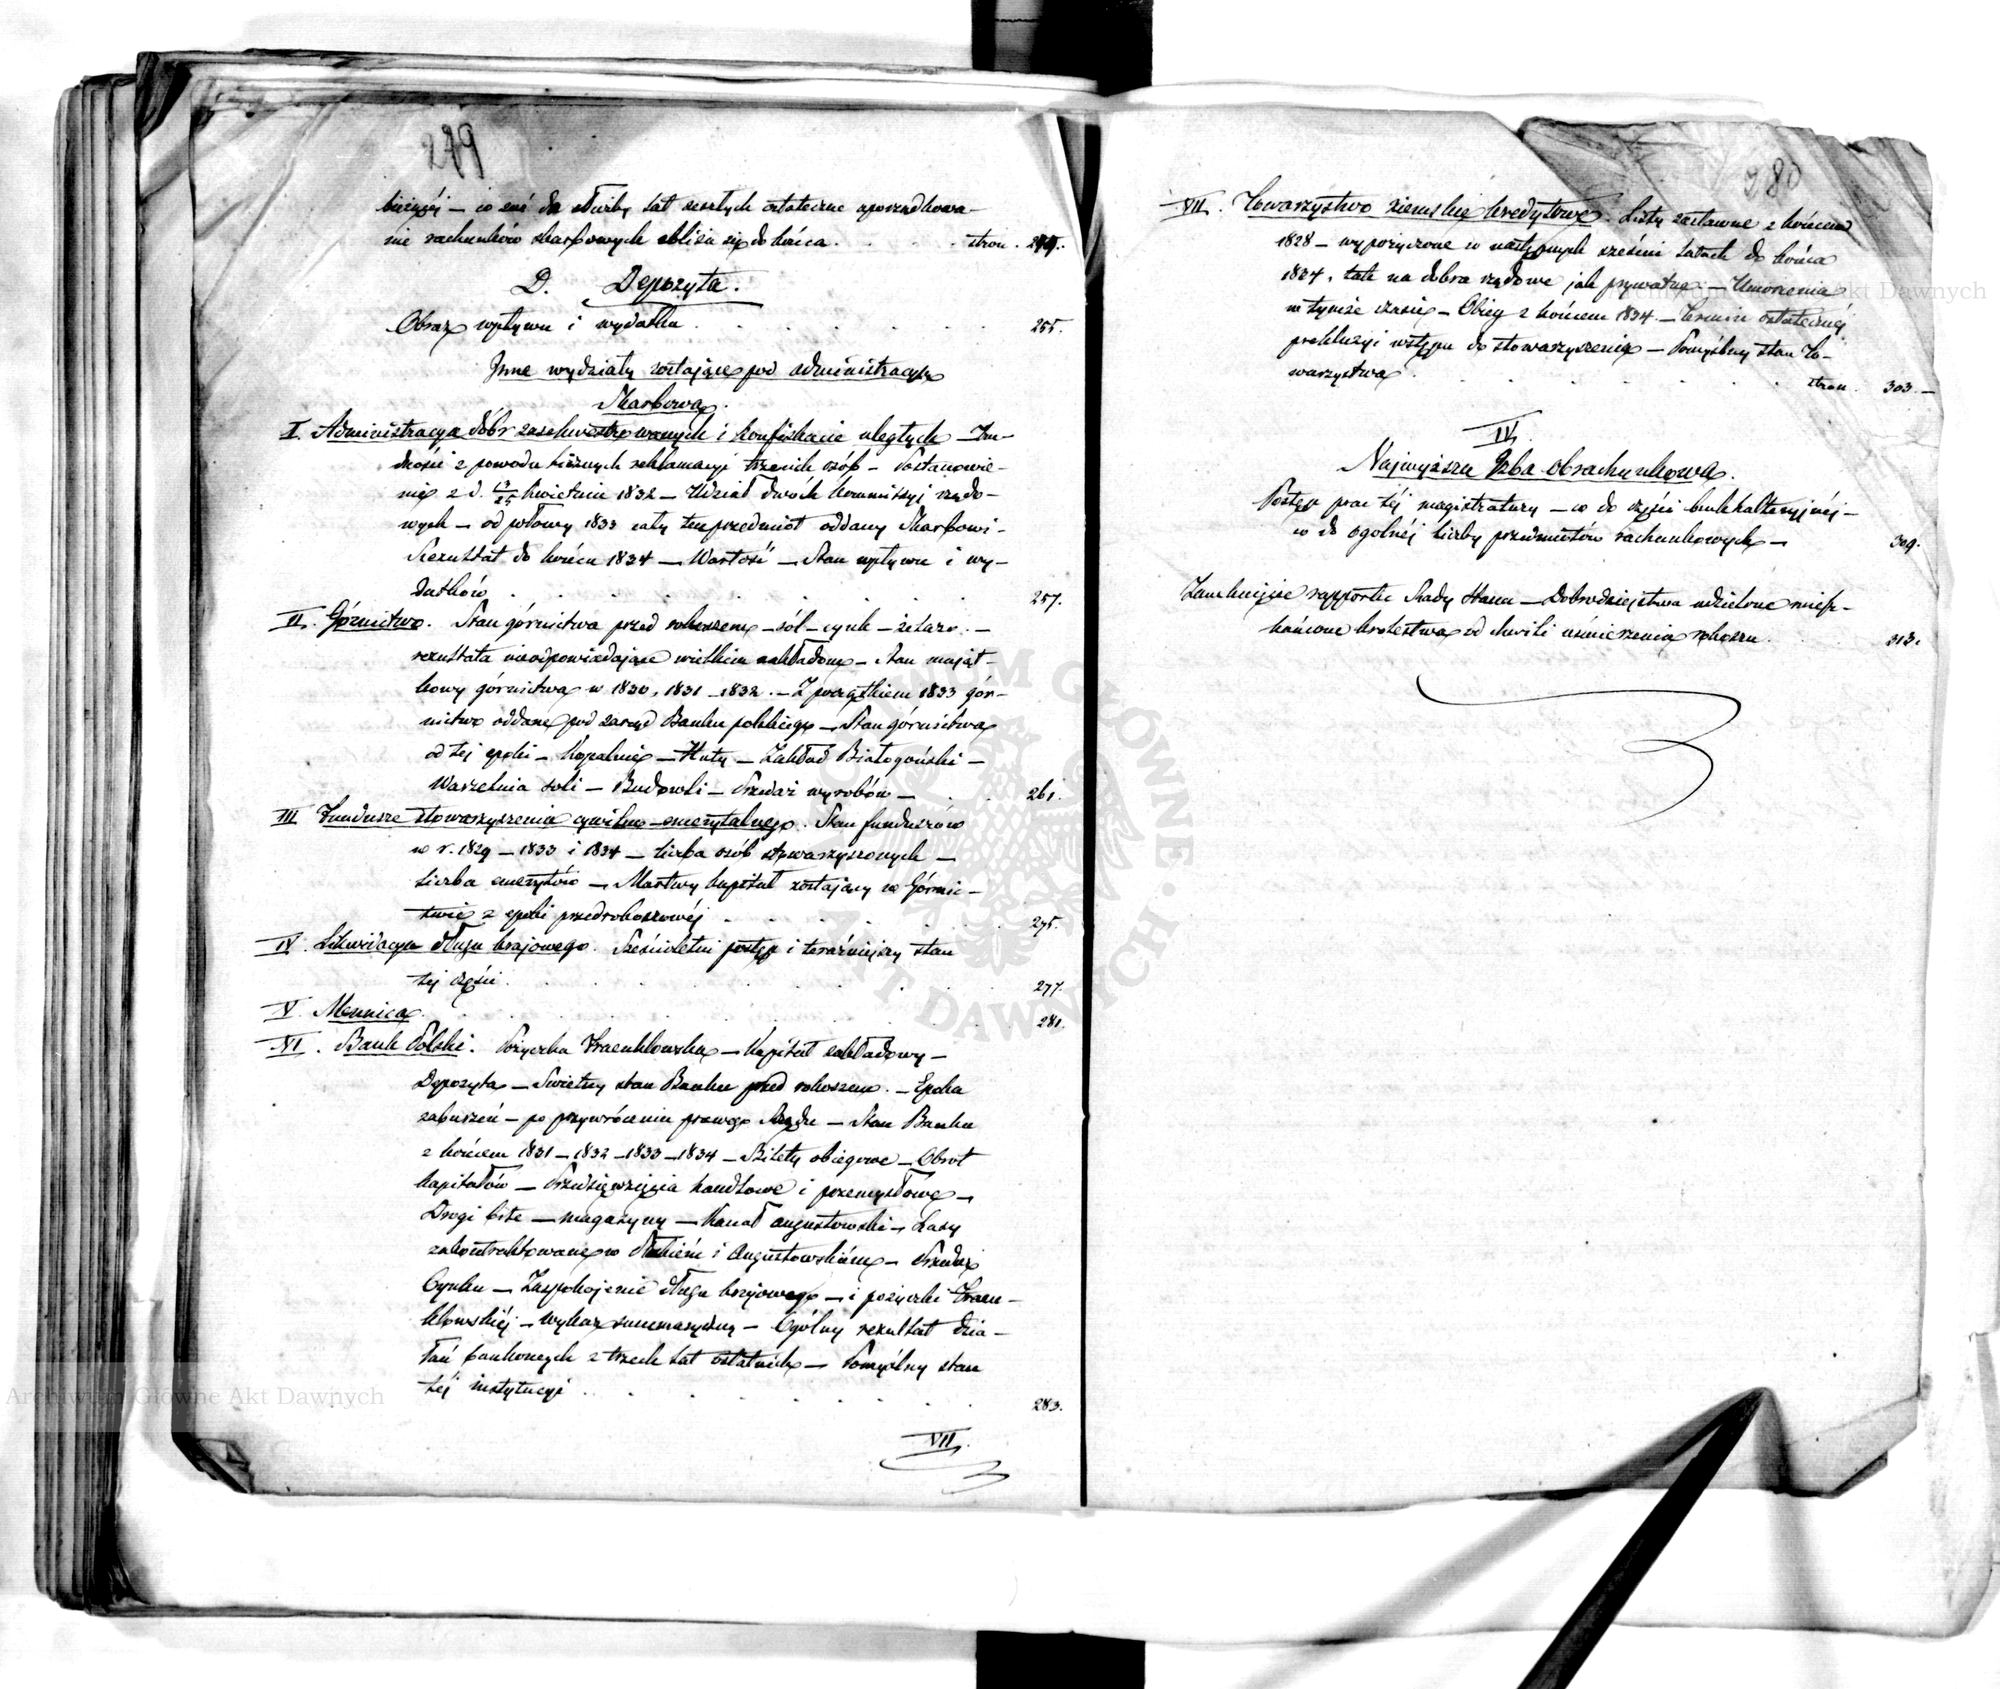 279
bieżącéj — co zaś do służby lat zeszłych ostateczne uporządkowa-
nie rachunków skarbowych zbliża się do końca . . . . stron. 249.
D. Depozyta.
Obraz wpływu i wydatku . . . . . . . . . 255.
Inne wydziały zostające pod administracyą
Skarbową.
I. Administracya dóbr zasekwestrowanych i konfiskacie uległych — Tru-
dności z powodu licznych reklamacyi trzecich osób — Postanowie-
nie z d. 13/25 kwietnia 1832 — Udział dwóch kommissyi rządo-
wych — od połowy 1833 cały ten przedmiot oddany Skarbowi —
Rezultat do końca 1834 — Wartość — Stan wpływu i wy-
datków . . . . . . . . 257.
II. Górnictwo. Stan górnictwa przed rokoszem — sól — cynk — żelazo. —
rezultata nieodpowiadające wielkim nakładom — Stan mająt-
kowy górnictwa w 1830, 1831 — 1832. — Z początkiem 1833 gór-
nictwo oddane pod zarząd Banku polskiego — Stan górnictwa
od tej epoki — Kopalnie — Huty — Zakład Białogoński —
Warzelnia soli — Budowli — Przedaż wyrobów — . . 261.
III Fundusze stowarzyszenia cywilno-emerytalnego. Stan funduszów
w r. 1829 — 1833 i 1834 — liczba osób stowarzyszonych —
Liczba emerytów — Martwy kapitał zostający w Górnic-
twie z epoki przedrokoszowéj . . . . . . 275.
IV. Likwidacya długu krajowego. Sześcioletni postęp i teraźniejszy stan
tej części . . . . . . . . 277.
V. Mennica . . . . . . . . 281.
VI. Bank Polski. Pożyczka Fraenklowska — Kapitał zakładowy —
Depozyta — Świetny stan Banku przed rokoszem. — Epoka
zaburzeń — po przywróceniu prawego Rządu — Stan Banku
z końcem 1831 — 1832 — 1833 — 1834 — Bilety obiegowe — Obrot
kapitałów — Przedsięwzięcia handlowe i przemysłowe —
Drogi bite — magazyny — Kanał augustowski — Lasy
zakontraktowane w Płockiém i Augustowskiém — Przedaż
Cynku — Zaspokojenie długu krajowego — i pożyczki Fraen-
klowskiéj — wykaz summaryczny — Ogólny rezultat dzia-
łań bankowych z trzech lat ostatnich — Pomyślny stan
téj instytucyi . . . . . . . 283.
VII.
280
VII. Towarzystwo ziemskie kredytowe. Listy zastawne z końcem
1828 — wypożyczone w następnych sześciu latach do końca
1834, tak na dobra rządowe jak prywatne — Umorzenia
w tymże czasie — Obieg z końcem 1834. — Termin ostatecznéj
prekluzyi wstępu do stowarzyszenia — Pomyślny stan To-
warzystwa . . . . . . . stron. 303. —
IV.
Najwyższa Izba obrachunkowa.
Postęp prac téj magistratury — co do części buchhalteryjnéj —
co do ogólnéj liczby przedmiotów rachunkowych — 309.
Zamknięcie rapportu Rady Stanu — Dobrodziejstwa udzielone miesz-
kańcom królestwa od chwili uśmierzenia rokoszu . . . 313.
Archiwum Główne Akt Dawnych
ARCHIWUM GŁÓWNE AKT DAWNYCH
Archiwum Główne Akt Dawnych